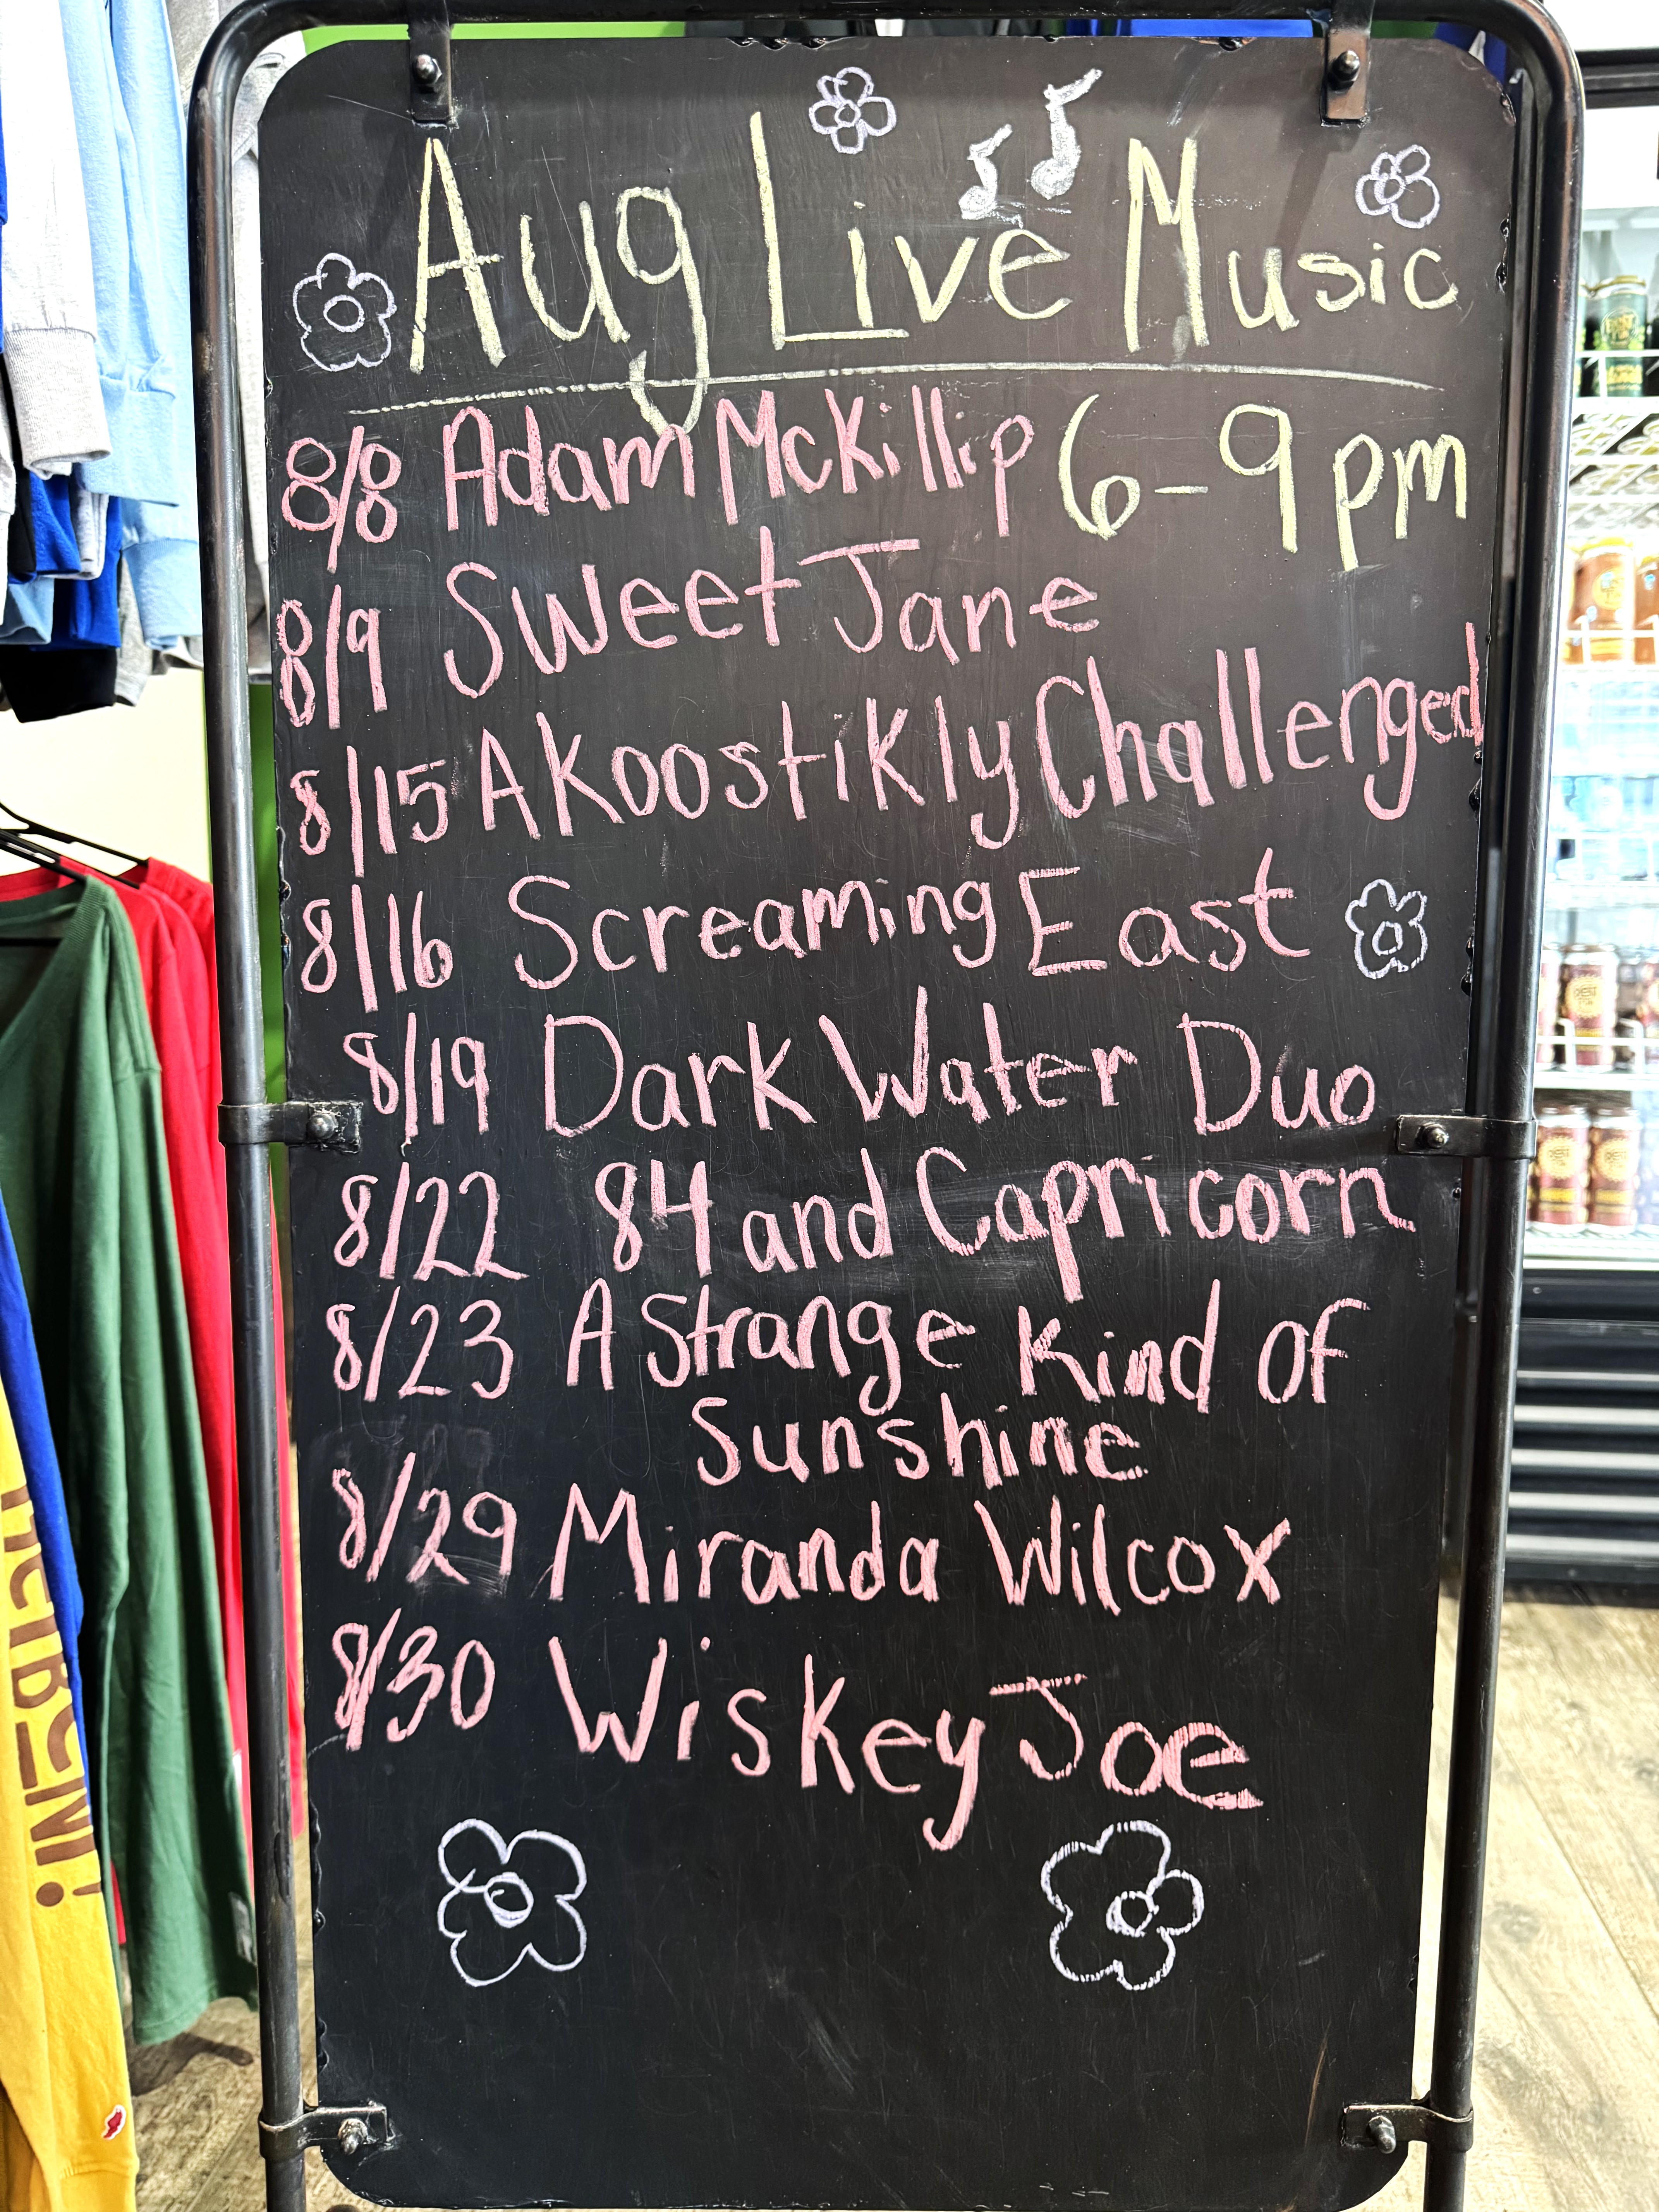 Aug Live Music
8/8 Adam McKillip 6-9pm
8/9 Sweet Jane
8/15 Akoostikly Challenged
8/16 Screaming East
8/19 Dark Water Duo
8/22 84 and Capricorn
8/23 A Strange Kind Of
Sunshine
8/29 Miranda Wilcox
8/30 Wiskey Joe